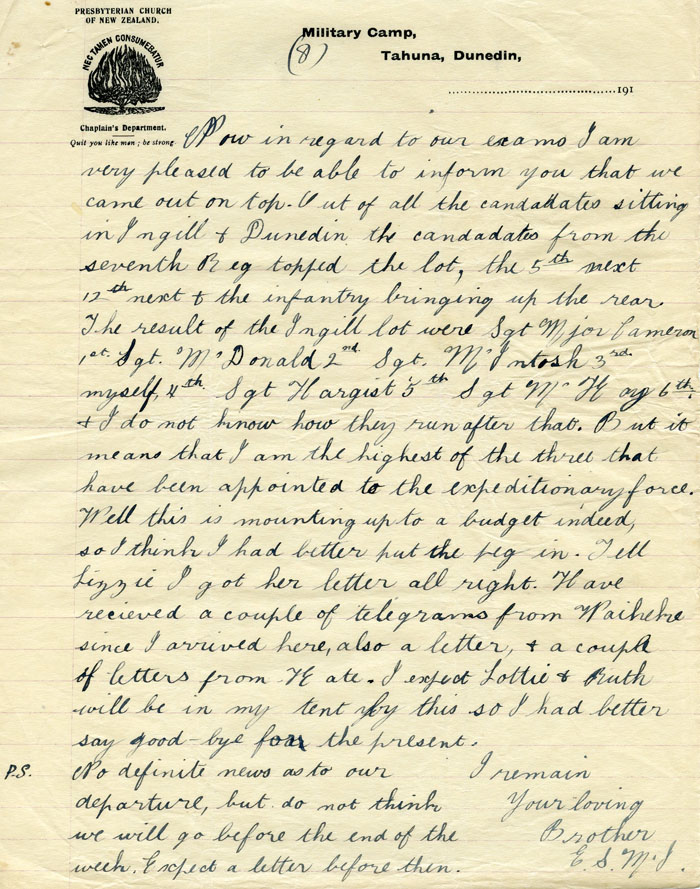 PRESBYTERIAN CHURCH
OF NEW ZEALAND.
NEC TAMEN CONSUMEBATUR
Chaplain's Department.
Quit you like men ; be strong
Military Camp,
(8)
Tahuna, Dunedin,
191
Now in regard to our exams I am
very pleased to be able to inform you that we
came out on top. Out of all the candadates sitting
in Ingill & Dunedin the candadates from the
seventh Reg topped the lot, the 5th next
12th next & the infantry bringing up the rear.
The result of the Ingill lot were Sgt Mjor Cameron
1st. Sgt. McDonald 2nd. Sgt. McIntosh 3rd.
myself, 4th. Sgt Hargist 5th Sgt McKay 6th.
& I do not know how they run after that. But it
means that I am the highest of the three that
have been appointed to the expeditionary force.
Well this is mounting up to a budget indeed,
so I think I had better put the peg in. Tell
Lizzie I got her letter all right. Have
recieved a couple of telegrams from Waikeke
since I arrived here, also a letter, & a couple
of letters from Kate. I expect Lottie & Ruth
will be in my tent by this so I had better
say good-bye for the present.
P.S. No definite news as to our
departure, but do not think
we will go before the end of the
week. Expect a letter before then.
I remain
Your loving
Brother
E. S. McI.